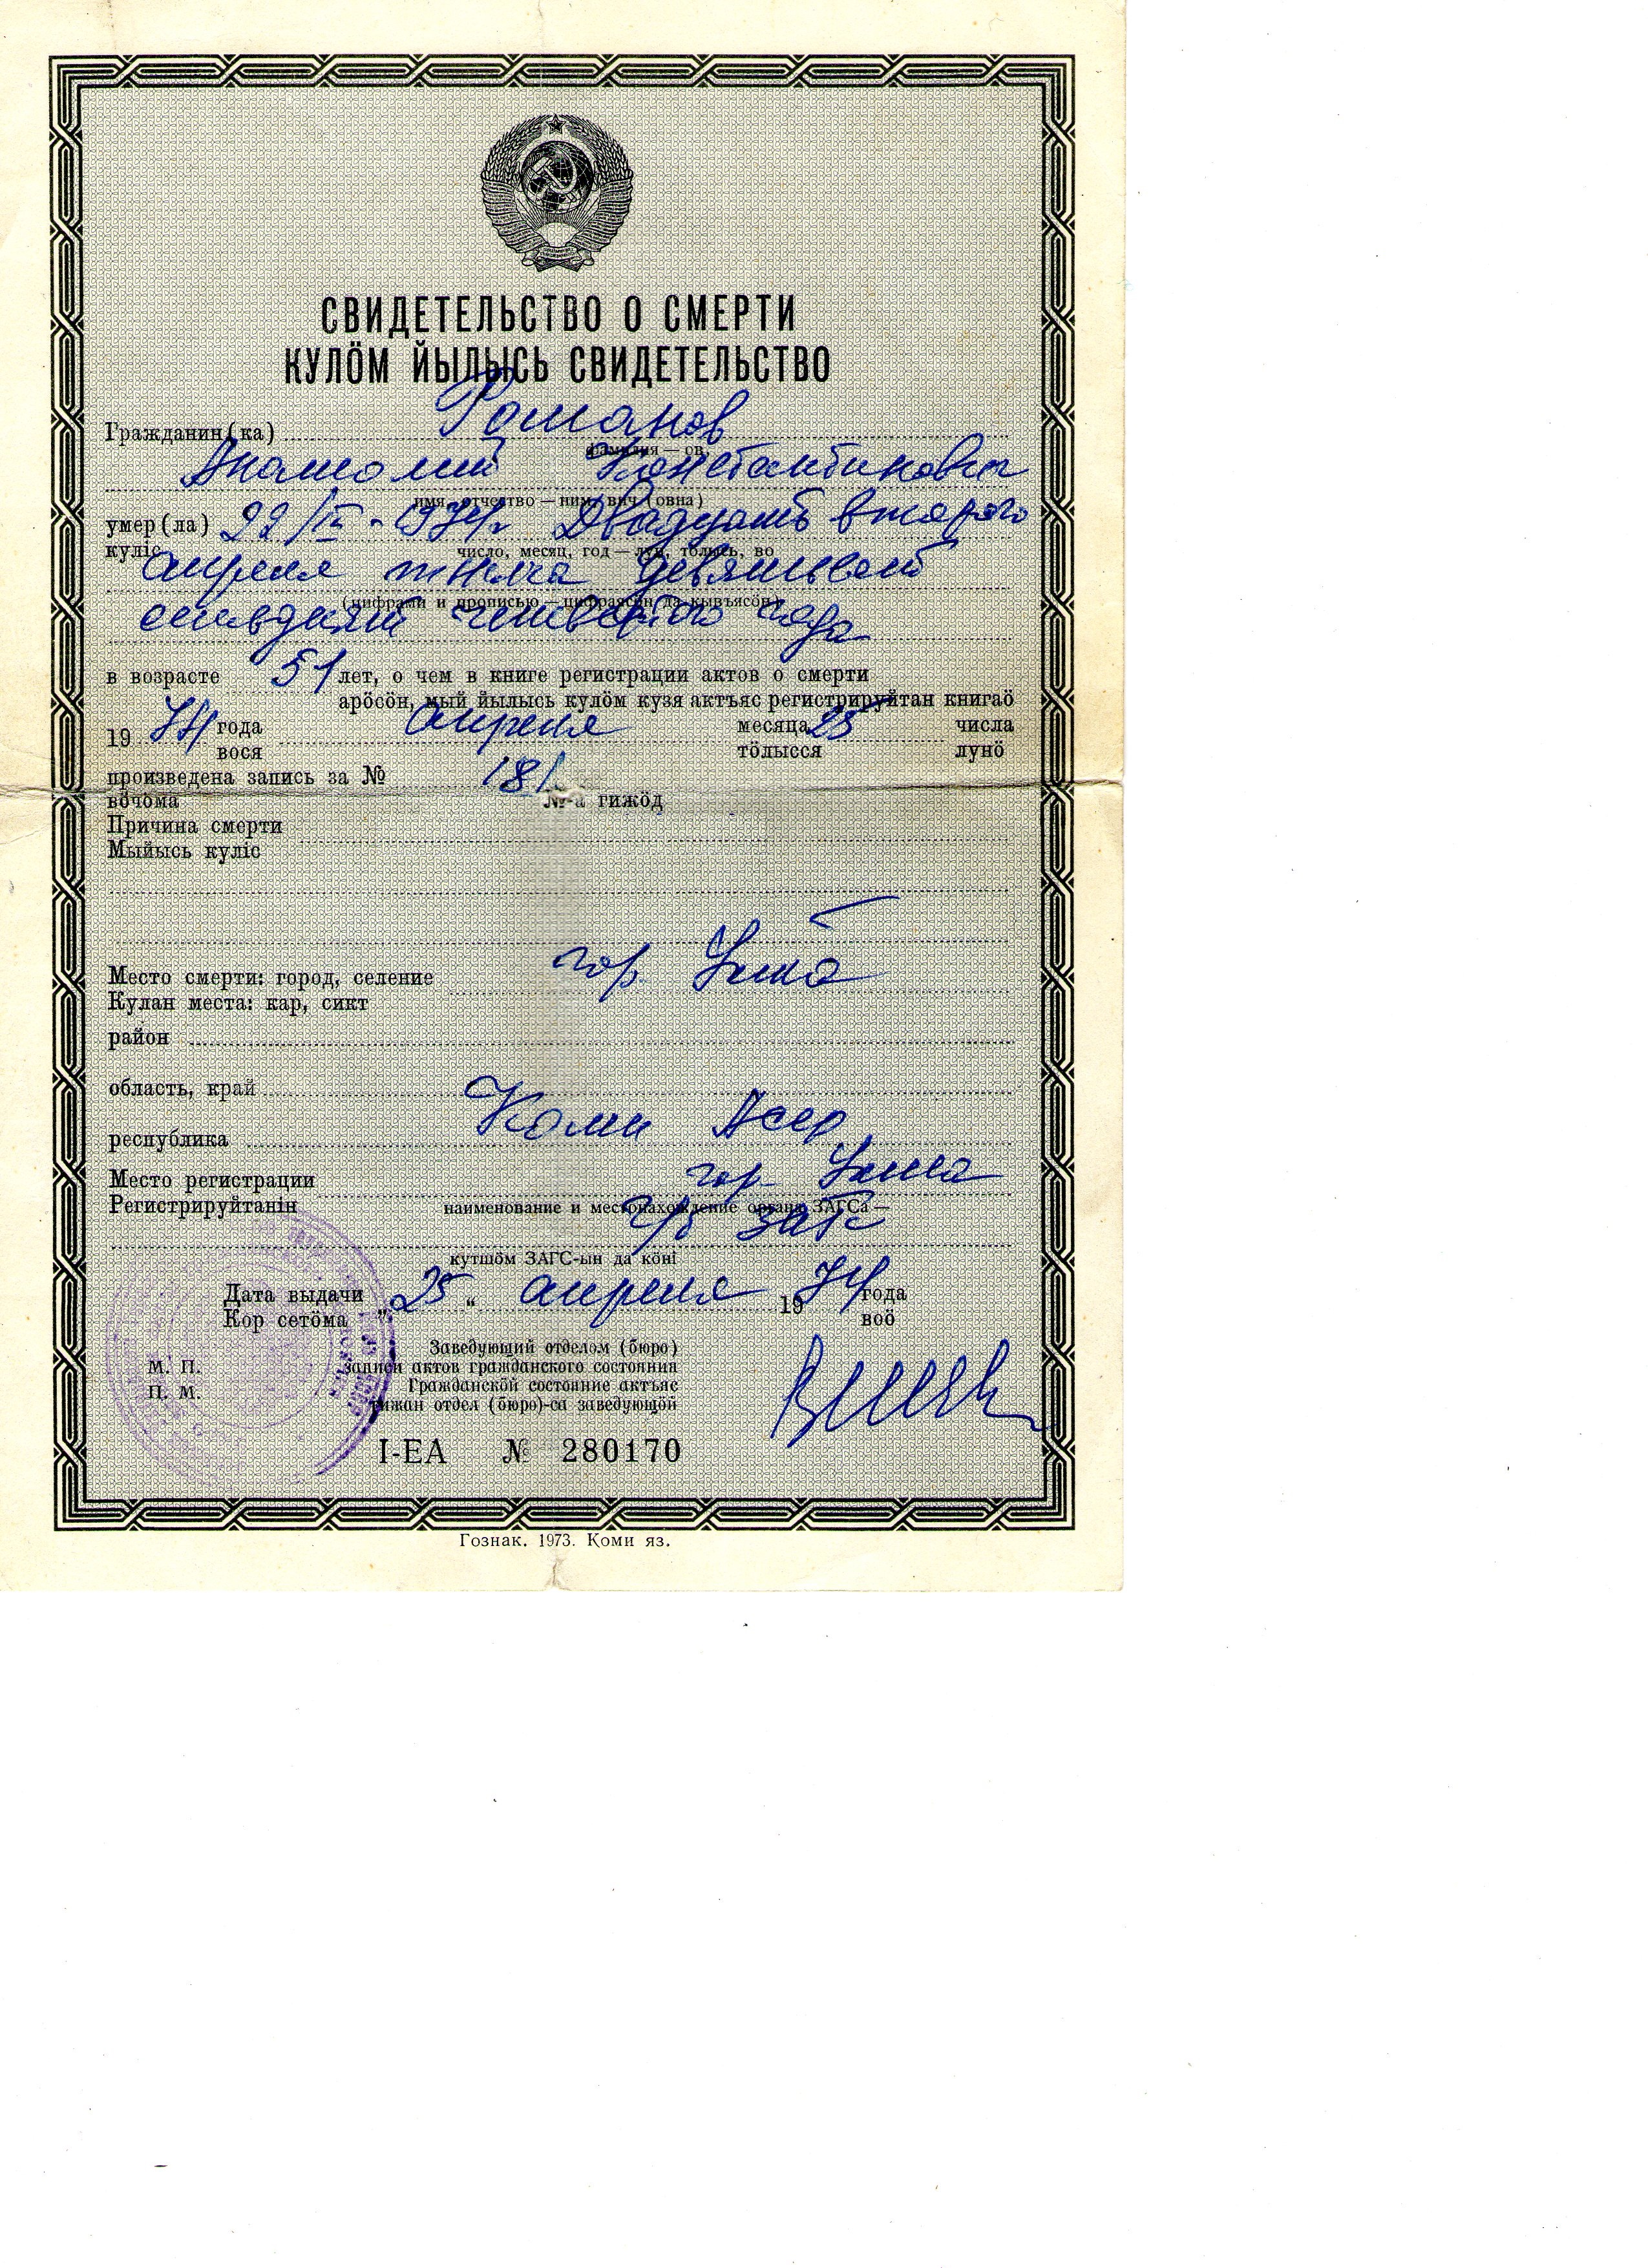 СВИДЕТЕЛЬСТВО О СМЕРТИ
КУЛӦМ ЙЫЛЫСЬ СВИДЕТЕЛЬСТВО
Гражданин(ка) Романов
фамилия — ов,
Анатолий Константинович
имя, отчество — ним, вич (овна)
умер(ла) 22/IV - 974г Двадцать второго
куліс
число, месяц, год — лун, тӧлысь, во
апреля тысяча девятьсот
(цифрами и прописью — цифраясӧн да кывъясӧн)
семьдесят четвертого года
в возрасте 51 лет, о чем в книге регистрации актов о смерти
арӧсӧн, мый йылысь кулӧм кузя актъяс регистрируйтан книгаӧ
19 74 года апреля месяца 25 числа
вося тӧлысся лунӧ
произведена запись за № 181
вӧчӧма №-а гижӧд
Причина смерти
Мыйысь куліс
Место смерти: город, селение гор. Ухта
Кулан места: кар, сикт
район
область, край
республика Коми Асср
Место регистрации гор Ухта
Регистрируйтанін
наименование и местонахождение органа ЗАГСа —
г/б загс
кутшӧм ЗАГС-ын да кӧні
Дата выдачи „ 25 “ апреля 19 74 года
Кор сетӧма воӧ
Заведующий отделом (бюро)
М. П. записи актов гражданского состояния
Гражданскӧй состояние актъяс
П. М. гижан отдел (бюро)-са заведующӧй
I-ЕА № 280170
Гознак. 1973. Коми яз.